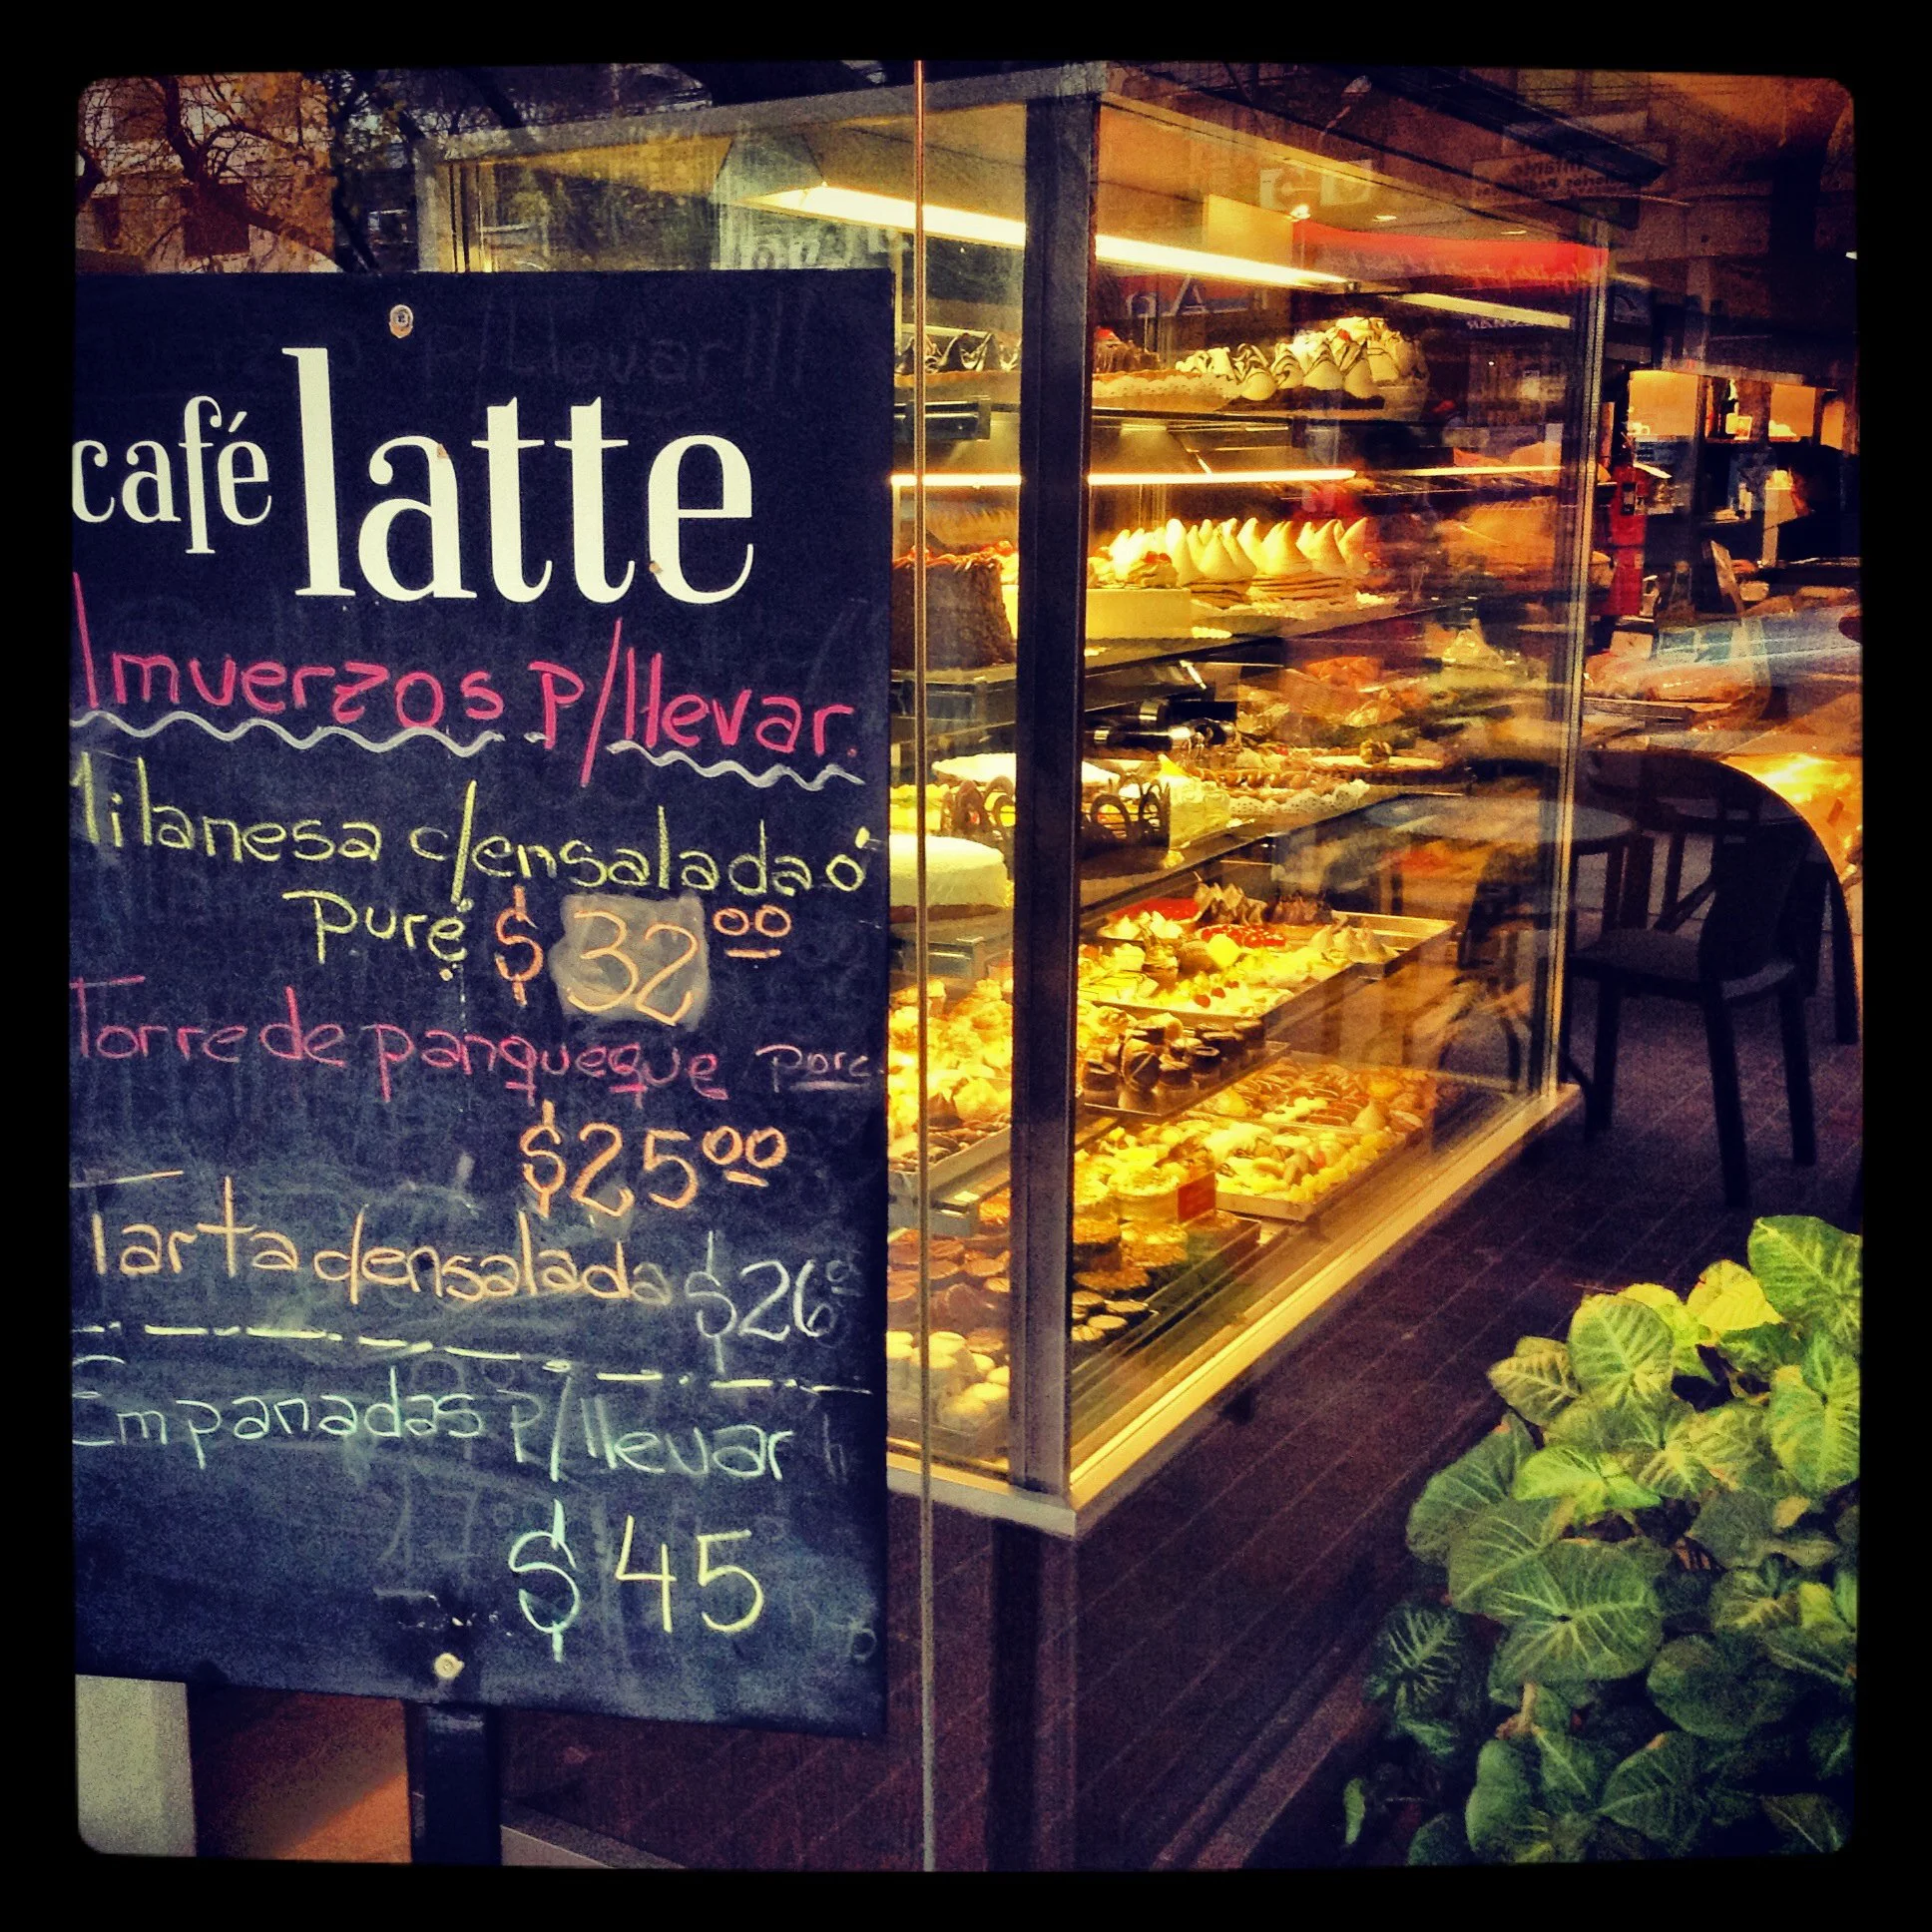 café latte
Almuerzos P/llevar.
Milanesa c/ensalada ó
Puré $ 32 00
Torre de panqueque porc.
$25 00
Tarta c/ensalada $26
Empanadas P/llevar
$ 45